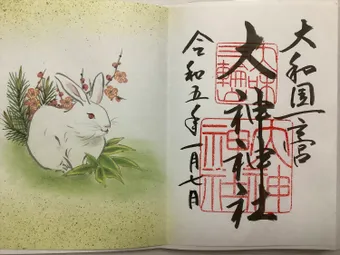 大和国一宮
大神神社
令和五年一月七日
三輪明神
大神神社